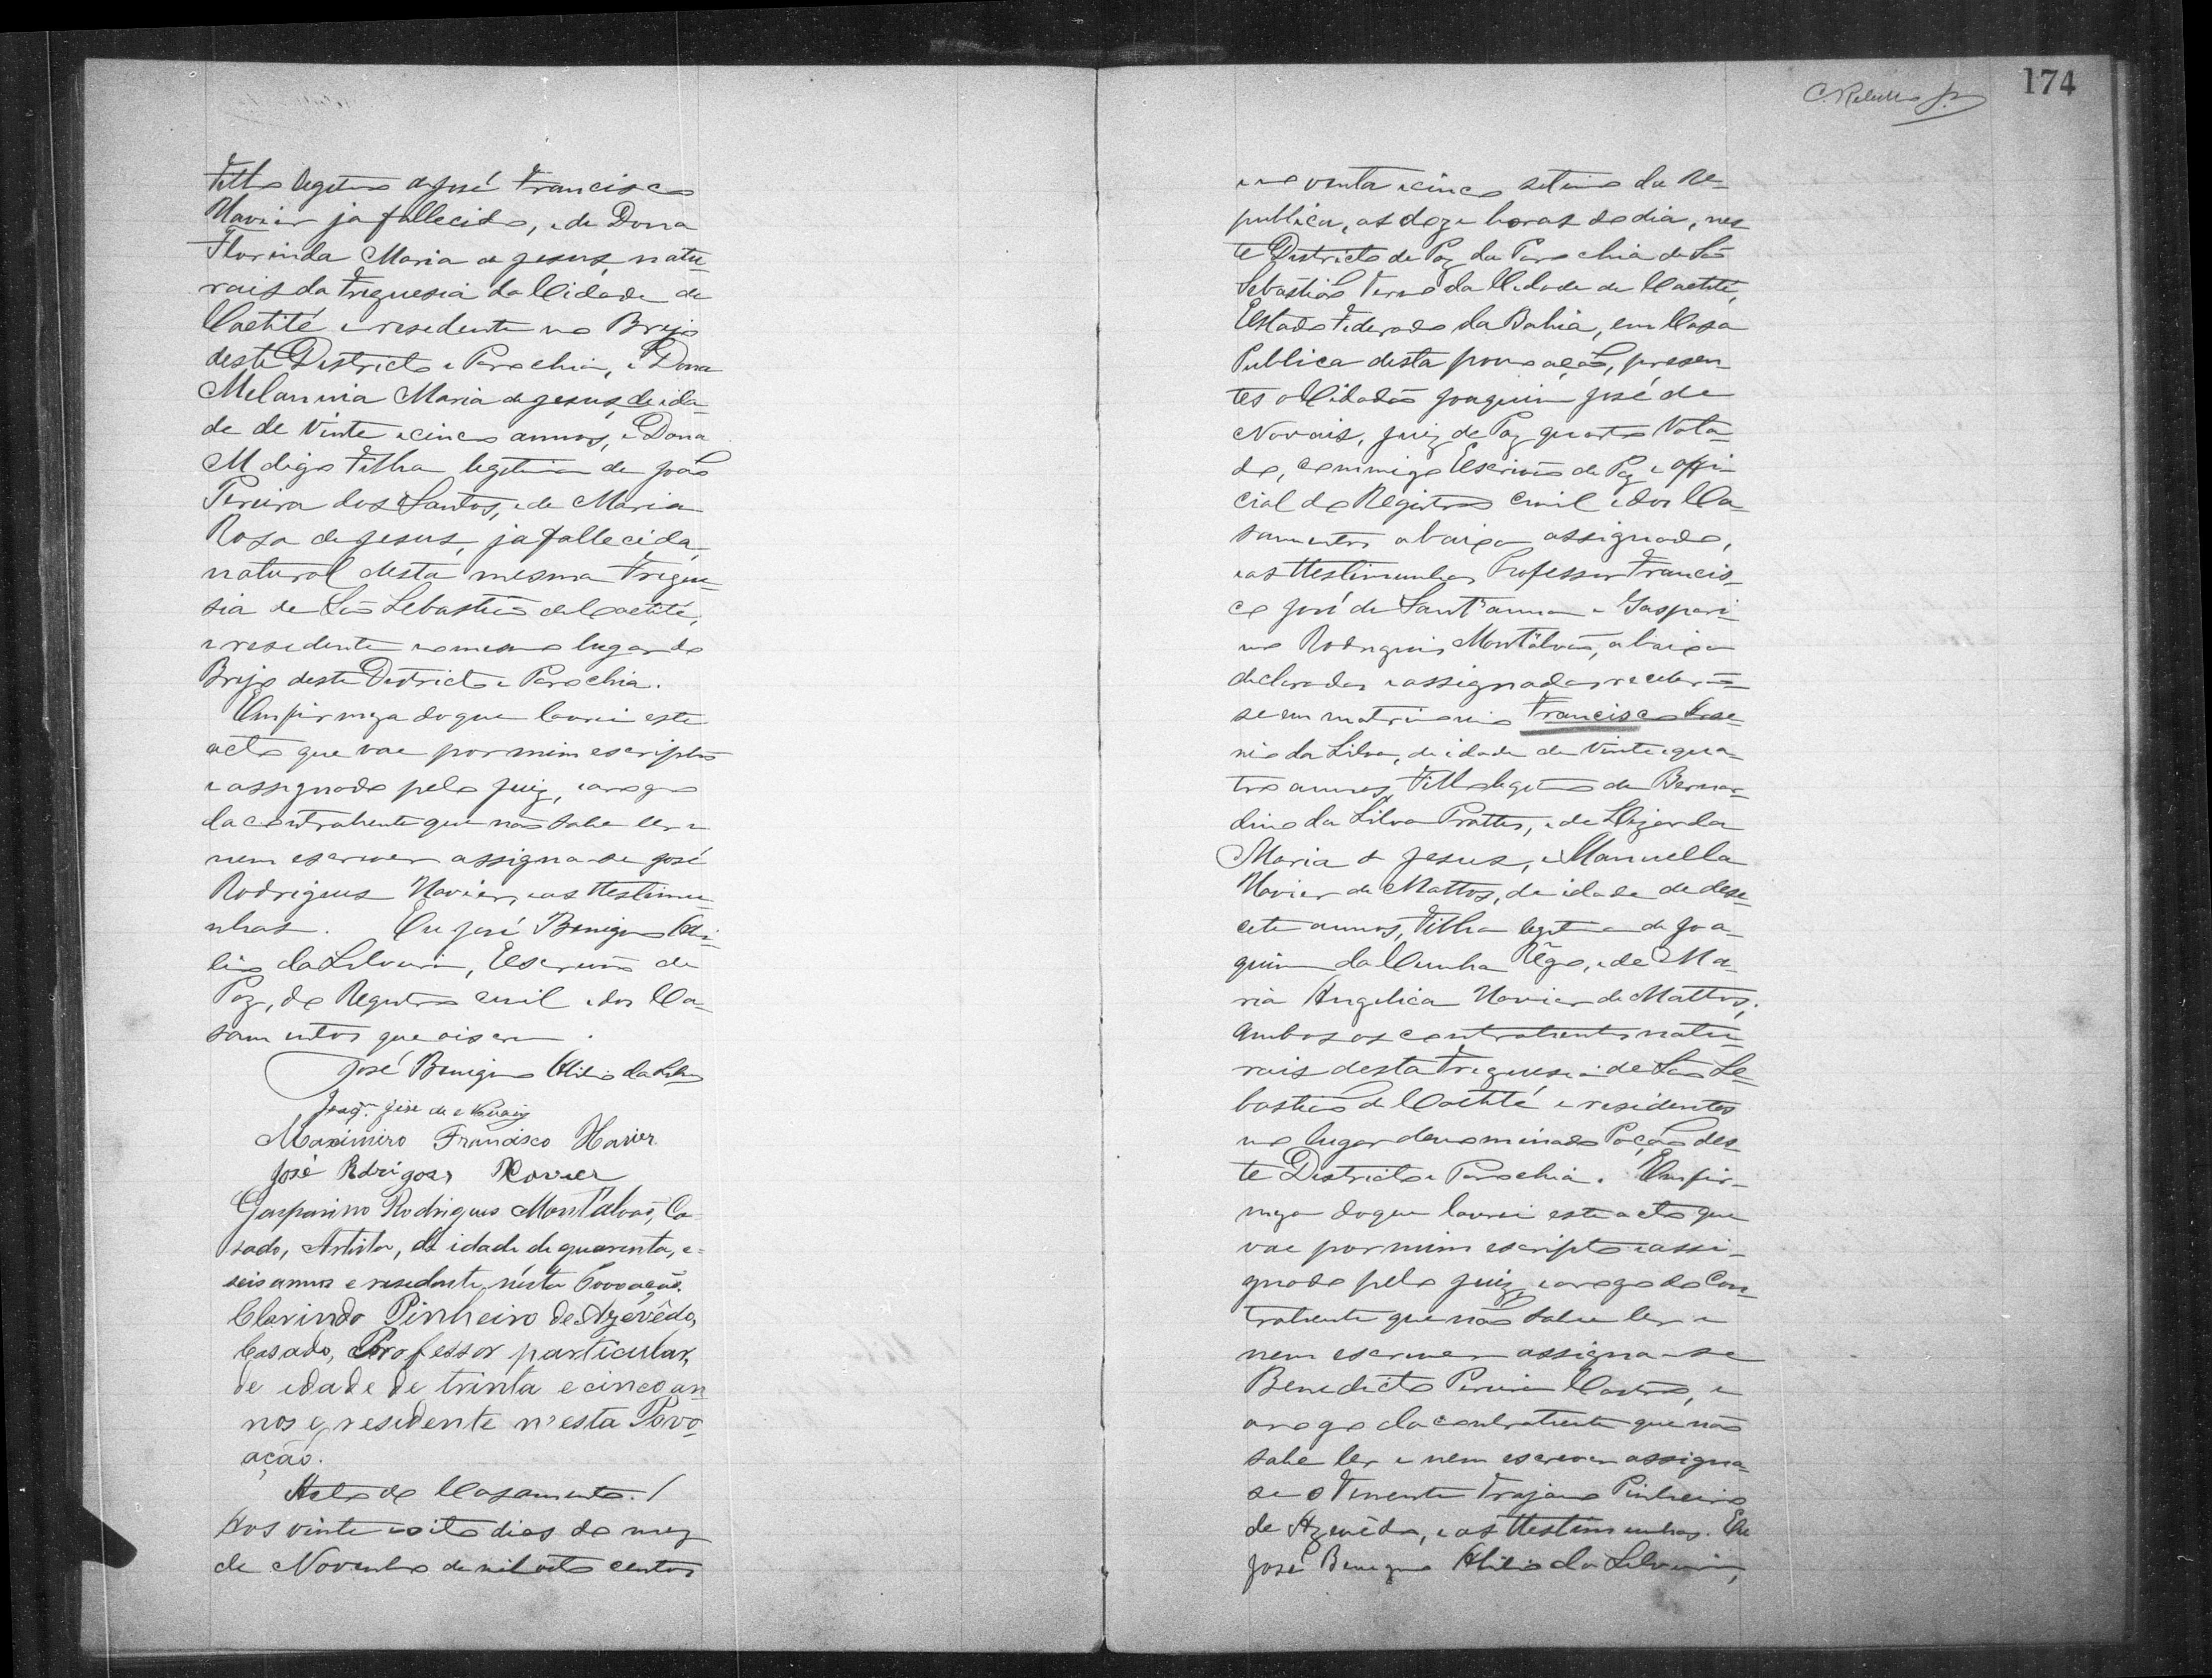 Filho legitimo de José Francisco
Xavier ja fallecido, e de Dona
Florinda Maria de Jesus, natu-
rais da Freguesia da Cidade de
Caetité e residente no Brejo
deste Districto e Parochia, e Dona
Melannia Maria de Jesus, de ida-
de de vinte e cinco annos, e Dona
M digo Filha legitima de João
Pereira dos Santos, e de Maria
Rosa de Jesus, ja fallecida,
natural desta mesma Fregue-
sia de São Sebastião de Caetité,
e residente no mesmo lugar do
Brejo deste Districto e Parochia.
Em firmeza do que lavrei este
acto que vae por mim escripto
e assignado pelo Juiz, e arogo
da contrahente que não sabe ler e
nem escrever assigna-se José
Rodrigues Xavier, e as ttestimu-
nhas. Eu José Benigno
da Silveira, Escrivão de
Paz, do Registro civil e dos Ca-
samentos que o iscrevi.
José Benigno da Silvª
Joaqᵐ José de Novais
Maximiro Francisco Xavier
José Rdrigoes Xavier
Gasparino Rodrigues Montalvaõ, Ca-
sado, Artista, de idade de quarenta, e-
seis annos e residente, nésta Povoação.
Clarindo Pinheiro de Azevêdo,
Casado, Professor particular,
de idade de trinta e cinco an
nos e, residente n'esta Povo
ação.
Acto do Casamento. /
Aos vinte e oito dias do mez
de Novembro de mil oito centos
174
e noventa e cinco setimo da Re-
publica, as doze horas do dia, nes
te Districto de Paz da Parochia de São
Sebastião Termo da Cidade de Caetité,
Estado Federado da Bahia, em Casa
Publica desta povoação, presen-
tes o Cidadão Joaquim José de
Novais, Juiz de Paz quarto Vota-
do, commigo Escrivão de Paz e offi-
cial do Registro Civil e dos Ca-
samentos abaixo assignado,
e as ttestimunhas Professor Francis-
co José de Sant'anna e Gaspari-
no Rodrigues Montalvão, abaixo
declarados e assignados receberão-
se em matrimonio Francisco
da Silva, de idade de vinte e qua-
tro annos, Filho legitimo de Bernar-
dino da Silva Prattes, e de
Maria de Jesus, e Mannuella
Xavier de Mattos, de idade de dese-
cete annos, Filha legitima de Joa-
quim da Cunha Rêgo, e de Ma-
ria Angelica Xavier de Mattos,
ambos os contrahentes natu-
rais desta Freguesia de São Se-
bastião de Caetité e residentes
no lugar denominado Poção des-
te Districto e Parochia. Em fir-
meza do que lavrei este acto que
vae por mim escripto e assi-
gnado pelo Juiz, e arogo do Con-
trahente que não sabe ler e
nem escrever assigna-se
Benedicto Pereira Castro, e
arogo da contrahente que não
sabe ler e nem escrever assigna-
se o Tenente Trajano Pinheiro
de Azevêdo, e as ttestimunhas. Eu
José Benigno da Silveira,